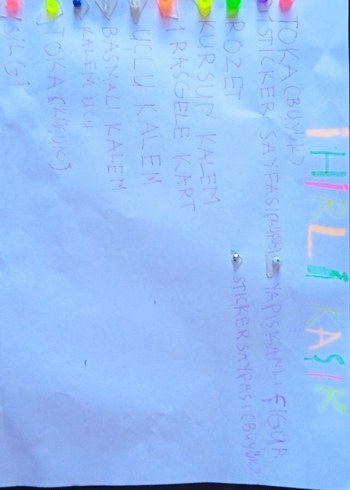 iHiRLi KAŞIK
TOKA(BÜYÜK)
STICKER SAYFASI
ROZET
KURŞUN KALEM
RASGELE KART
UÇLU KALEM
BASMALI KALEM
KALEM UCU
TOKA(KÜÇÜK)
SİLGİ
YAPIŞKANLI FİGÜR
STICKER SAYFASI(BÜYÜK)